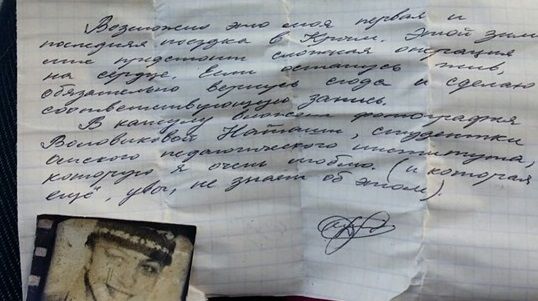 Возможно это моя первая и
последняя поездка в Крым. Этой зимой
мне предстоит сложная операция
на сердце. Если останусь жив,
обязательно вернусь сюда и сделаю
соответствующую запись.
В капсулу вложена фотография
Воловиковой Наташи, студентки
омского педагогического института,
которую я очень люблю. (и которая
ещё, увы, не знает об этом).